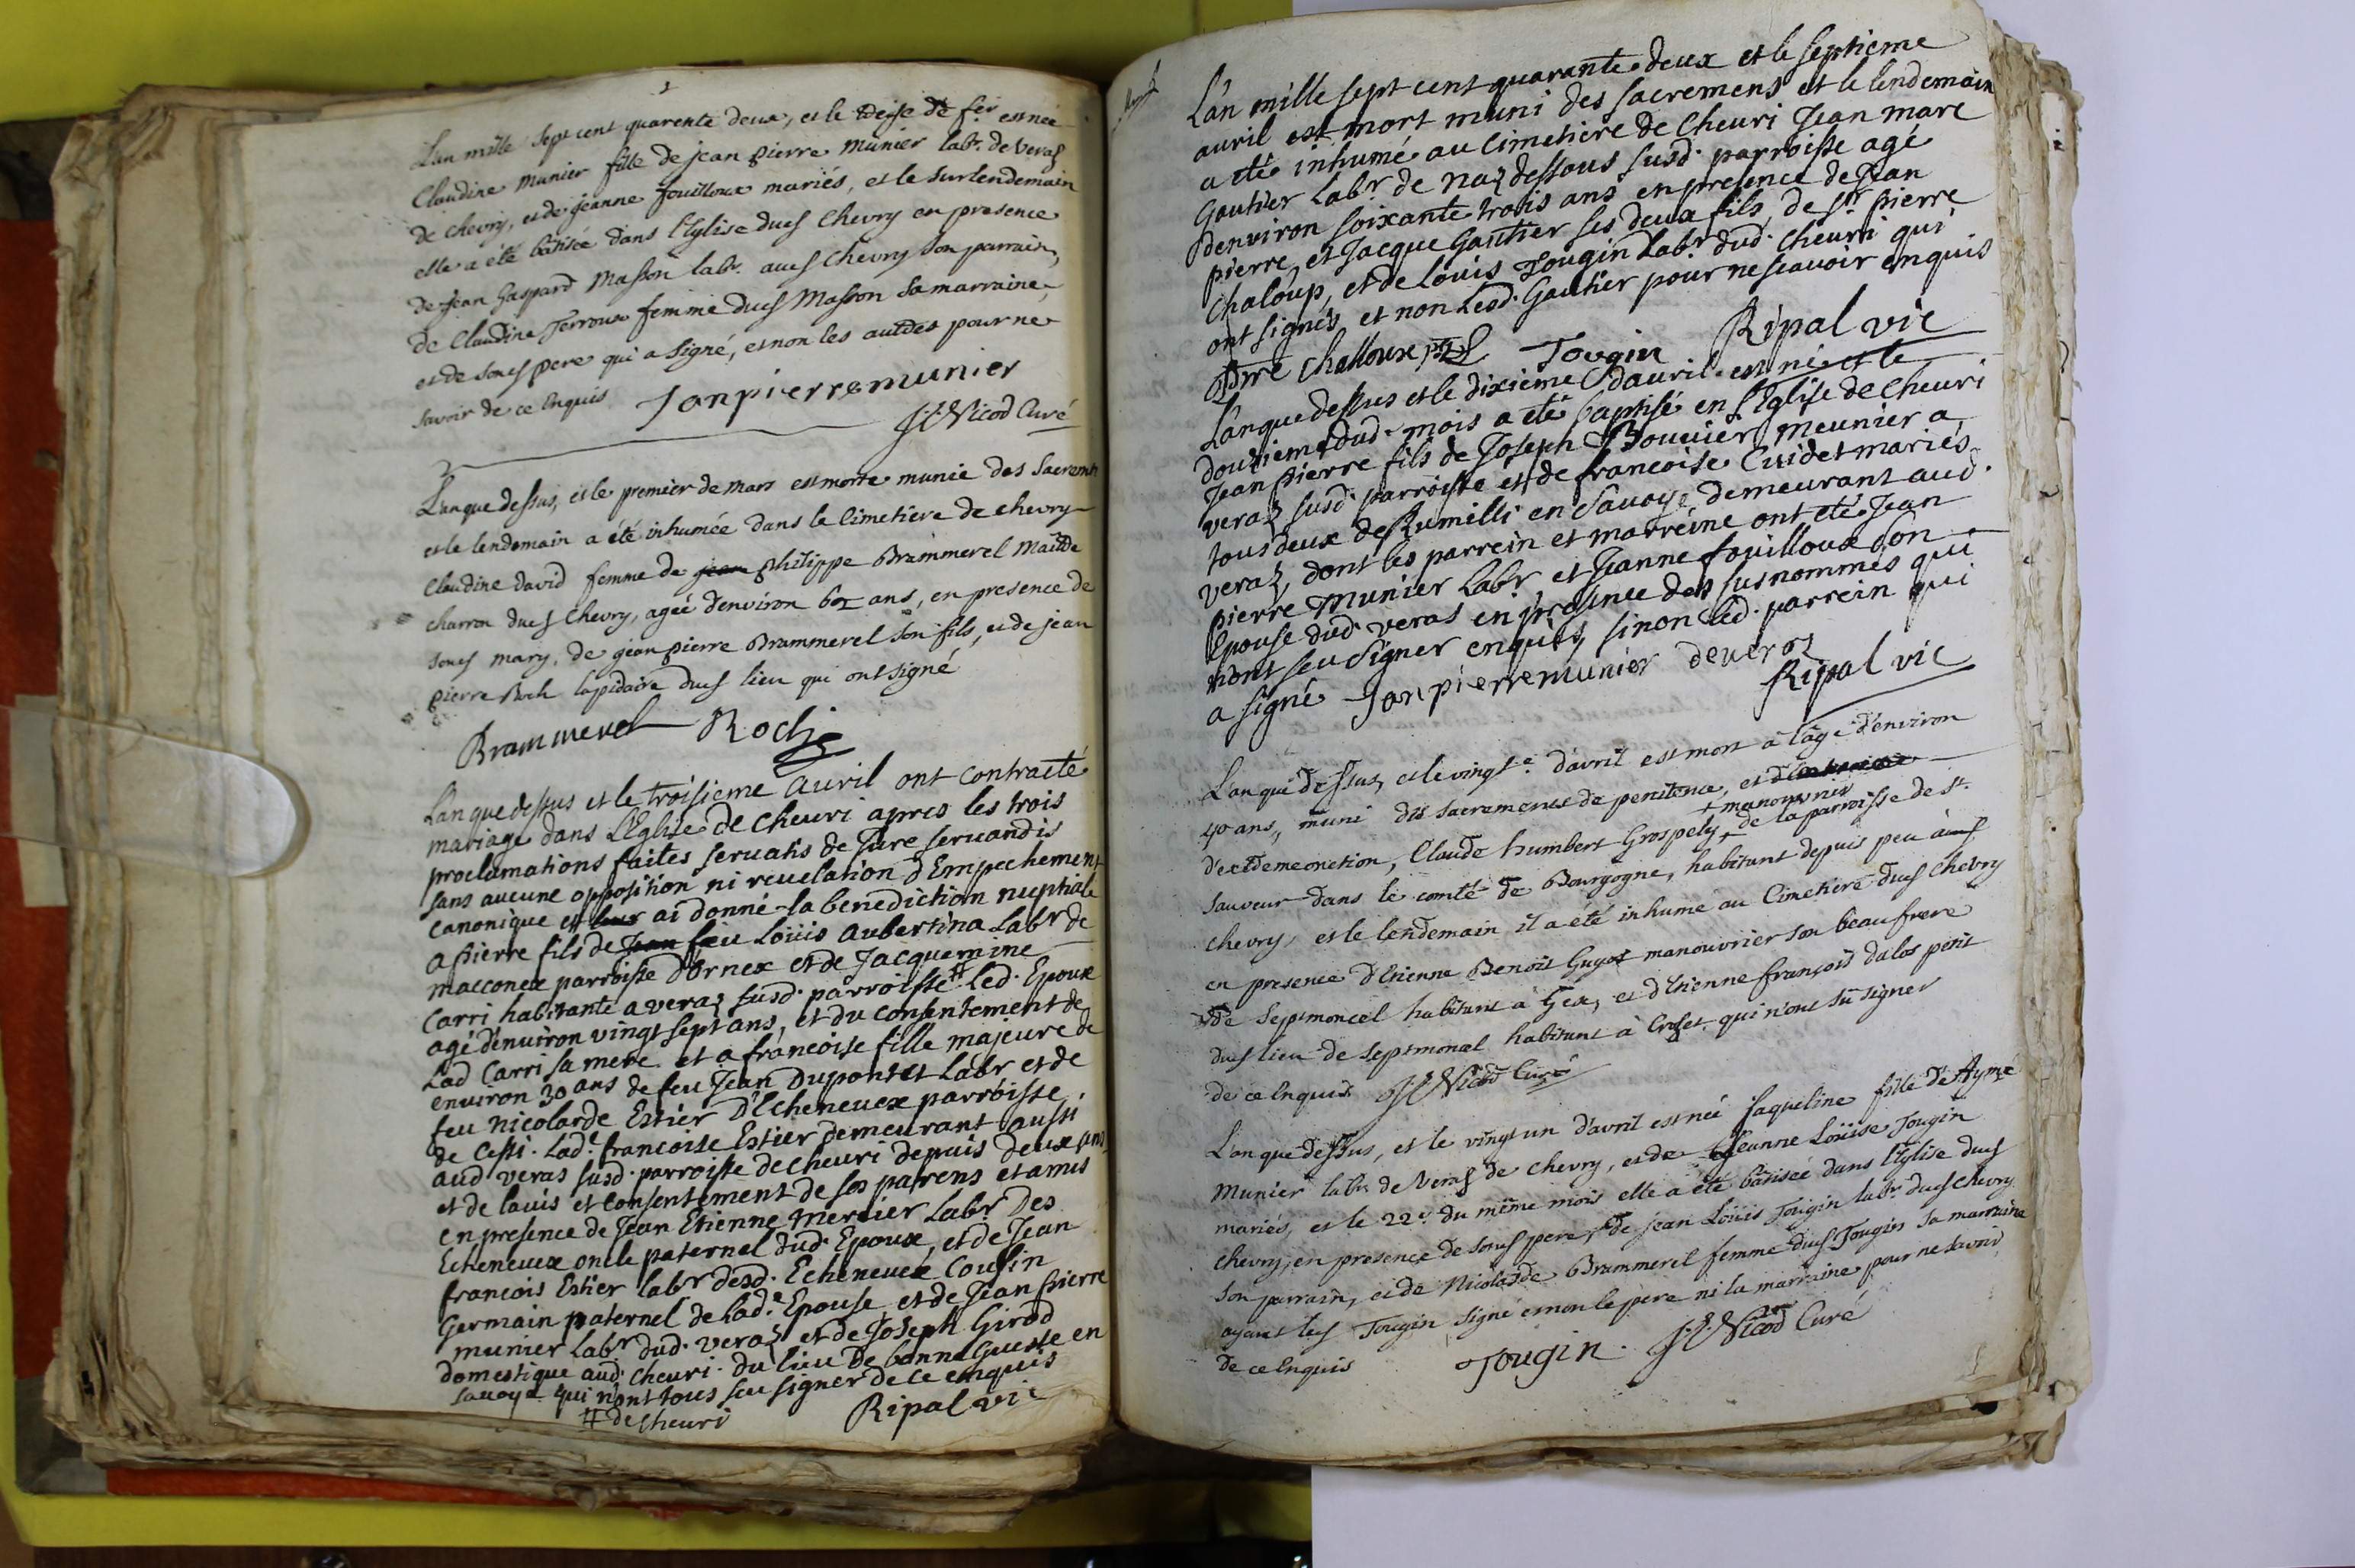 L'an mille sept cent quarente deux, et le treise de fer. est née
Claudine munier fille de jean pierre munier labr. de Veraz
de chevry, et de jeanne fouilloux mariés, et le surlendemain
elle a été bâtisée dans l'Eglise dud Chevry en presence
de jean Gaspard Masson labr. aud Chevry son parrain,
de Claudine Terroux femme dud Masson sa marraine,
et de soud pere qui a signé, et non les autres pour ne
savoir de ce Enquis Janpierremunier
J.C. Nicod Curé
L'an que dessus, et le premier de mars est morte munie des Sacremts
et le lendemain a été inhumée dans le Cimetiere de chevry
Claudine david femme de jean philippe Brammerel maitre
charron dud Chevry, agée d'environ 62 ans, en presence de
soud mary, de jean pierre Brammerel son fils, et de jean
pierre Roch lapidaire dud lieu qui ont signé
Brammerel Roch
L'an que dessus et le troisieme Avril ont contracté
mariage dans L'Eglise de Cheuri apres les trois
proclamations faites seruatis de Jure seruandis
sans aucune opposition ni reuelation d'Empechement
canonique et leur ai donné la benediction nuptiale
a pierre fils de Jean feu Loüis Aubertina Labr de
macconex parroisse d'Ornex et de Jacquemine
Carri habitante a veraz susd. parroisse # Led. Epoux
agé denuiron vingt sept ans, et du consentement de
Lad Carri sa mere et a francoise fille majeure de
enuiron 30 ans de feu Jean Dupontet Labr et de
feu nicolarde Estier D'Echeneuex parroisse
de Cessi. Lad.e francoise Estier demeurant aussi
aud veras susd. parroisse de cheuri depuis deux ans,
et de lauis et consentement de ses parens et amis
en presence de Jean Etienne mercier Labr Des
Echeneuex oncle paternel dud. Epoux, et de Jean
francois Estier labr desd. Echeneuex Cousin
Germain paternel de Lad.e Epouse et de Jean pierre
munier Labr dud. veraz et de Joseph Girod
domestique aud. Cheuri. du lieu De bonne Gueste en
sauoye qui n'ont tous sceu signer de ce enquis
# de Cheuri Ripal vic
L'an mille sept cent quarante deux et le septieme
auril est mort muni des sacremens et le lendemain
a eté inhumé au Cimetiere de Cheuri Jean marc
Gautier Labr de naz dessous susd. parroisse agé
denviron soixante trois ans en presence de Jean
pierre, et Jacque Gautier ses deux fils, de sr. pierre
Chaloup, et de Louis Tougin Labr dud. Cheuri qui
ont signés et non Lesd. Gautier pour ne scauoir enquis
Pre Challoux Tougin Ripal vic
L'an que dessus et le dixieme dauril est né et le
douzieme dud. mois a eté baptisé en l'Eglise de Cheuri
Jean pierre fils de Joseph Bouuier meunier a
veraz susd. parroisse et de francoise Cuidet mariés
tous deux de Rumilli en Sauoye demeurant aud.
veraz, dont les parrein et marreine ont eté Jean
pierre munier Labr et Jeanne fouilloux son
Epouse dud. veras en presence des susnommés qui
n'ont sceu signer enquis, sinon Led. parrein qui
a signé Janpierremunier deveraz
Ripal vic
L'an que dessus, et le vingte. d'avril est mort à l'age d'environ
40 ans, muni des sacremens de penitence, et d'
+ manouvrier
d'extremeonction, Claude humbert Grospely + de la parroisse de st.
Sauveur dans le comté de Bourgogne, habitant depuis peu à
chevry, et le lendemain il a été inhumé au Cimetiere dud chevry
en presence d'Etienne Benois Guyot manouvrier son beaufrere
de Septmoncel habitant à Gex, et d'Etienne françois dalos petit
dud lieu de septmoncel habitant à Crozet qui n'ont sû signer
de ce Enquis J.C. Nicod Curé
L'an que dessus, et le vingt un d'avril est née jaqueline fille d'Aymé
Munier labr. de Veraz de chevry, et de Jeanne Loüise Tougin
mariés, et le 22e. du même mois elle a été bâtisée dans l'Eglise dud
chevry, en presence de soud pere, de jean Loüis Tougin labr. dud chevry
son parrain, et de Nicolarde Brammerel femme dud Tougin sa marraine
ayant led Tougin signé et non le père ni la marraine pour ne savoir
de ce Enquis Tougin. J.C. Nicod Curé